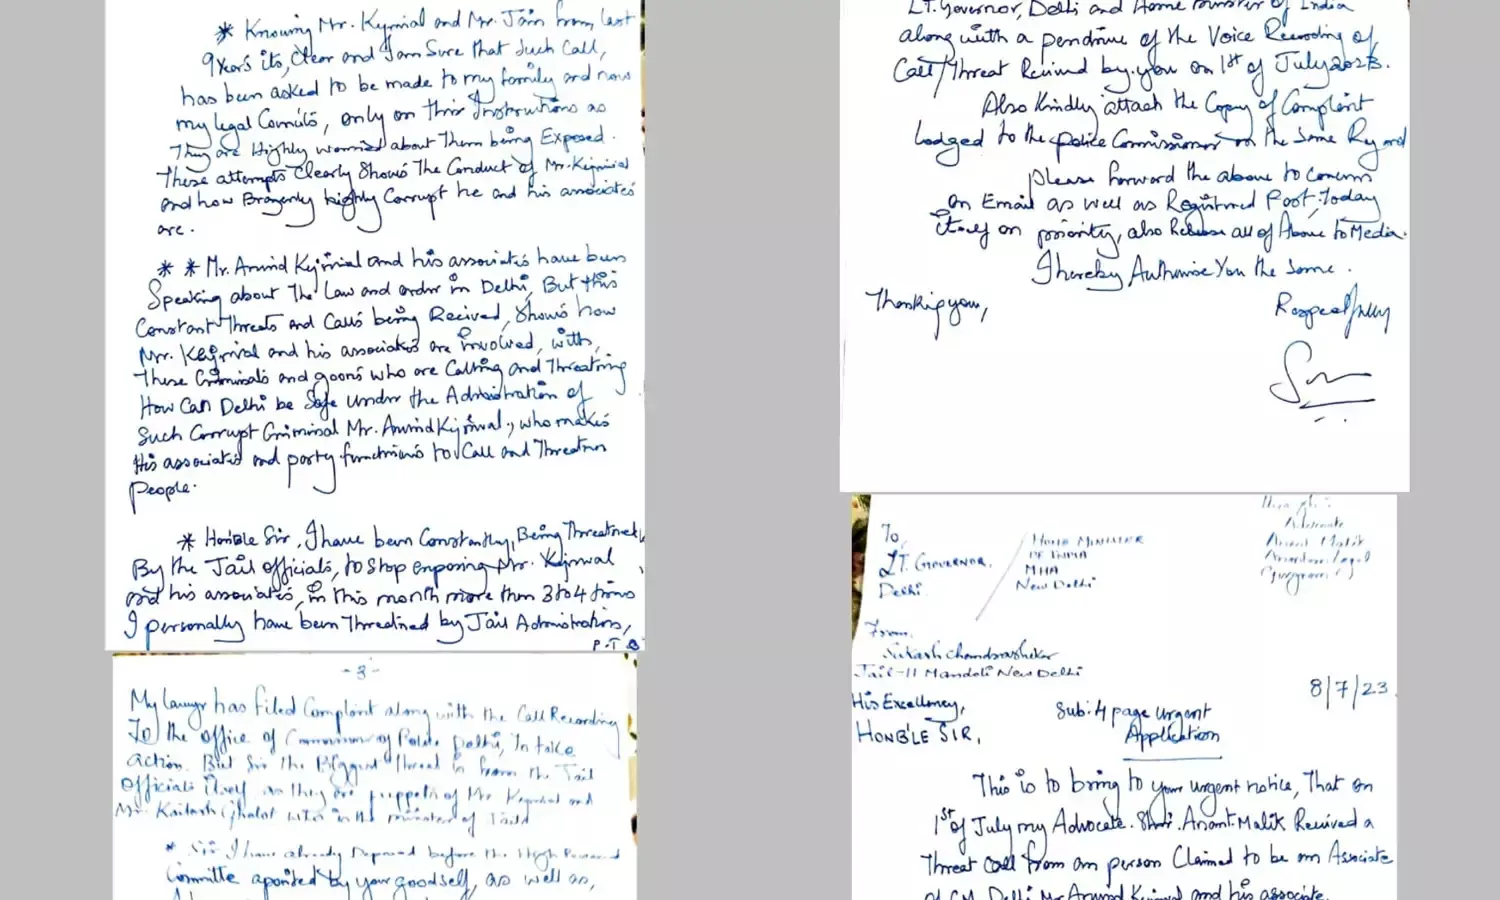 * Knowing Mr. Kejrival and Mr. Jain from, last
9 Years its, Clear and I am Sure that Such Call,
has been asked to be made to my family and now
my legal Comicls, only on their Instructions as
They are Highly worried about Them being Exposed.
These attempts Clearly Shows The Conduct of Mr. Kejrival
and how Brazenly highly Corrupt he and his associates
are.
* * Mr. Arvind Kejrival and his associates have been
Speaking about The Law and order in Delhi, But this
Constant Threats and Calls being Recived, Shows how
Mr. Kejrival and his associates are involved, with,
These Criminals and goons who are Calling and Threatning
How Can Delhi be Safe under the Administration of
Such Corrupt Criminal Mr. Arvind Kejrival, who makes
His associates and party functions to Call and Threaten
People.
* Honble Sir, I have been Constantly, Being Threatned
By the Jail officials, to Stop exposing Mr. Kejrival
and his associates, in this month more then 3 to 4 times
I personally have been Threatined by Jail Administration,
P.T.O
- 3 -
My lawyer has filed Complaint along with the Call Recording
To the office of Commissioner of Police Delhi, To take
action. But Sir the Biggest Threat is from the Jail
officials itself as they are puppets of Mr Kejrival and
Mr. Kailash Ghalot who is the minister of Jails
* Sir I have already Deposed before the High Powered
Committe aponted by your goodself, as well as,
LT. Governor, Delhi and Home Minister of India
along with a pendrive of the Voice Recording of
Call/Threat Recived by you on 1st of July 2023.
Also Kindly attach the Copy of Complaint
Lodged to the Police Commissioner on the Same Regard
please forward the above to concern
on Email as well as Registured Post, Today
itself on priority, also Release all of Above to Media.
I hereby Authorise You the Same.
Thanking you,
Respectfully
To,
LT. GOVERNOR.
Delhi
HOME MINISTER
OF INDIA
MHA
New Delhi
Advocate
Anant Malik
Legal
Gurgram
From,
Sukash Chandrashekar
Jail-11 Mandoli New Delhi
8/7/23
His Excellency,
HON'BLE SIR,
Sub: 4 page urgent
Application
This is to bring to your urgent notice, That on
1st of July my Advocate. Shri. Anant. Malik Recived a
Threat Call from an person Claimed to be an Associate
of CM Delhi Mr Arvind Kejrival and his associate